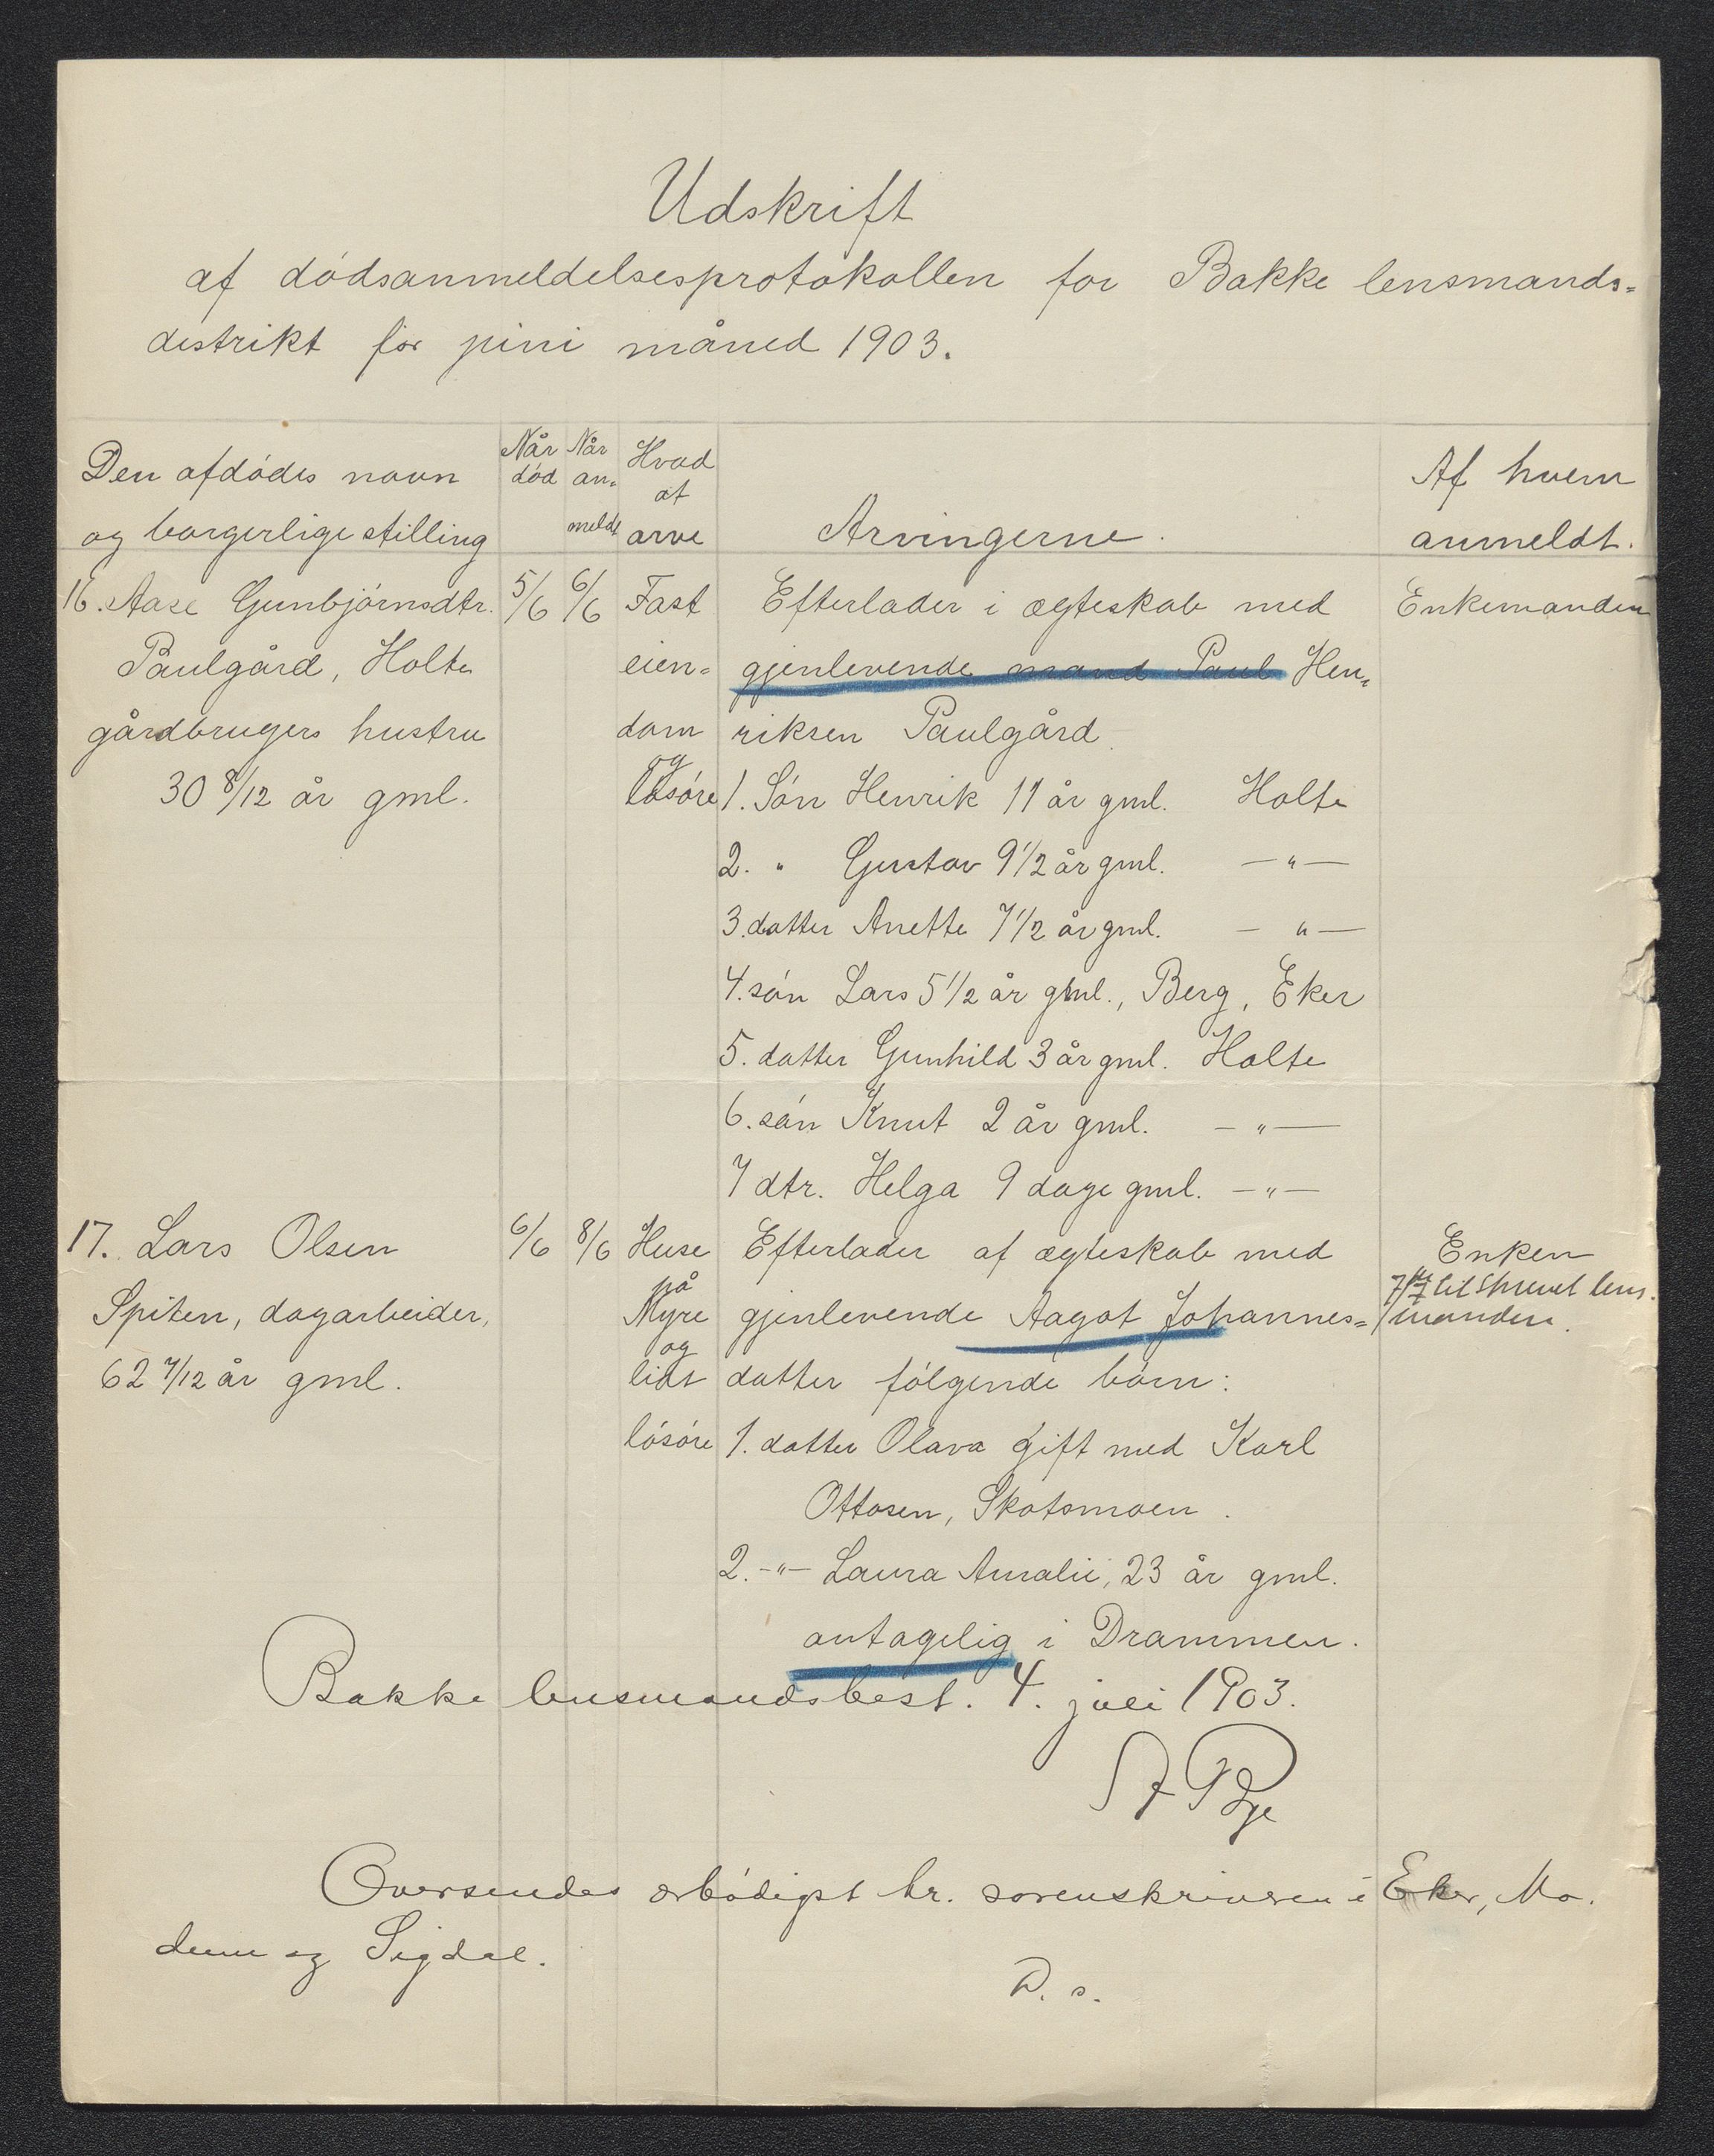 Udskrift
af dødsanmeldelsesprotokollen for Bakke lensmands=
distrikt for juni måned 1903.
Den afdødes navn
og borgerlige stilling
Når
død
Når
an=
meldt
Hvad
at
arve
Arvingerne.
Af hvem
anmeldt.
16. Aase Gunbjørnsdtr.
Paulgård, Holte
gårdbrugers hustru
30 8/12 år gml.
5/6
6/6
Fast
eien=
dom
og
løsøre
Efterlader i ægteskab med
gjenlevende mand Paul Hen=
riksen Paulgård.
1. Søn Henrik 11 år gml. Holte
2. " Gustav 9 1/2 år gml. —"—
3. datter Anette 7 1/2 år gml. —"—
4. søn Lars 5 1/2 år gml., Berg, Eker
5. datter Gunhild 3 år gml. Holte
6. søn Knut 2 år gml. —"—
7 dtr. Helga 9 dage gml. —"—
Enkemanden
17. Lars Olsen
Spiten, dagarbeider,
62 7/12 år gml.
6/6
8/6
Huse
på
Myre
og
lidt
løsøre
Efterlader af ægteskab med
gjenlevende Aagot Johannes=
datter følgende børn:
1. datter Olava gift med Karl
Ottosen, Skotsmoen.
2. —"— Laura Amalie, 23 år gml.
antagelig i Drammen.
Enken
7/7 tilskrevet lens.
manden.
Bakke lensmandsbest. 4. juli 1903.
Oversendes ærbødigst hr. sorenskriveren i Eker, Mo.
dum og Sigdal.
D. s.